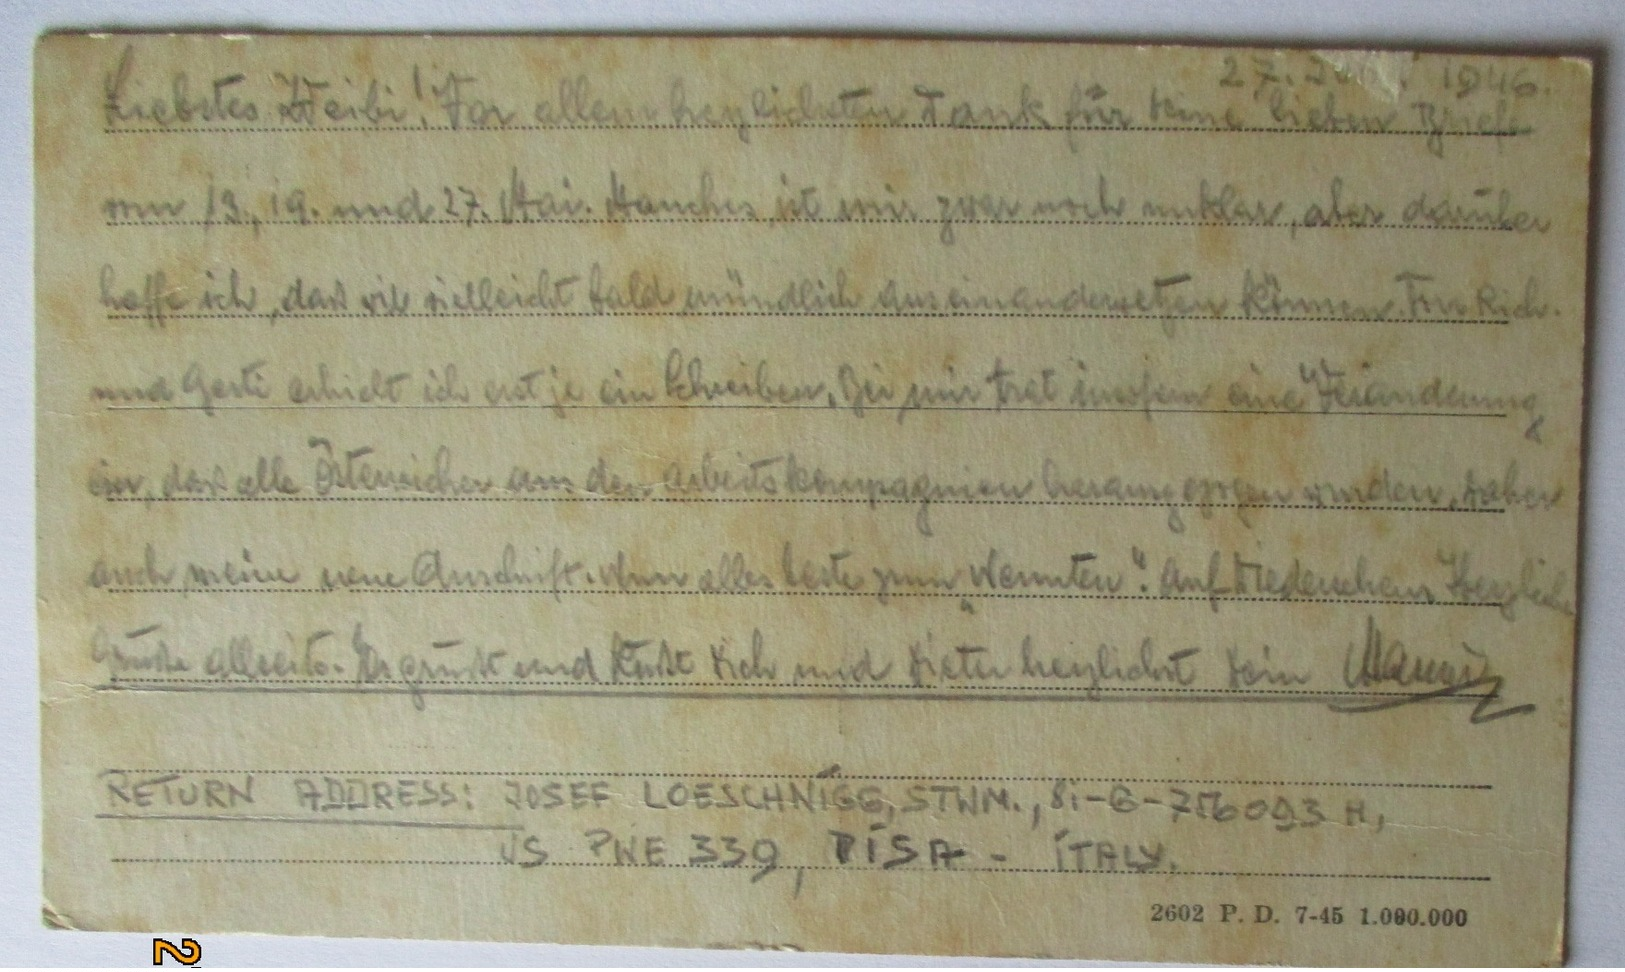 27. 1946.
Liebstes Weibi! Vor allem herzlichsten Dank für Deine lieben Briefe
vom 13., 19. und 27. Mai. Manches ist mir zwar noch unklar, aber darüber
hoffe ich, daß wir vielleicht bald mündlich auseinandersetzen können. Von Rich.
und Gerti erhielt ich erst je ein Schreiben. Bei mir trat insofern eine Veränderung
ein, daß alle Österreicher aus den Arbeitskompagnien herausgezogen wurden, daher
auch meine neue Anschrift. Nun alles beste zum "Vierten". Auf Wiedersehen. Herzliche
Grüße allseits. Es grüßt und küßt Dich und Dieter herzlichst Dein
RETURN ADDRESS: JOSEF LOESCHNIGG, STWM., 81-G-756093 H,
US PWE 339, PISA - ITALY.
2602 P. D. 7-45 1.000.000
2